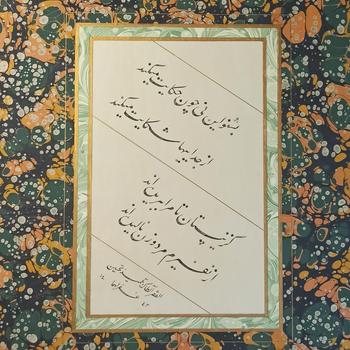 بشنو این نی چون حکایت میکند
از جداییها شکایت میکند
کز نیستان تا مرا ببریده‌اند
از نفیرم مرد و زن نالیده‌اند